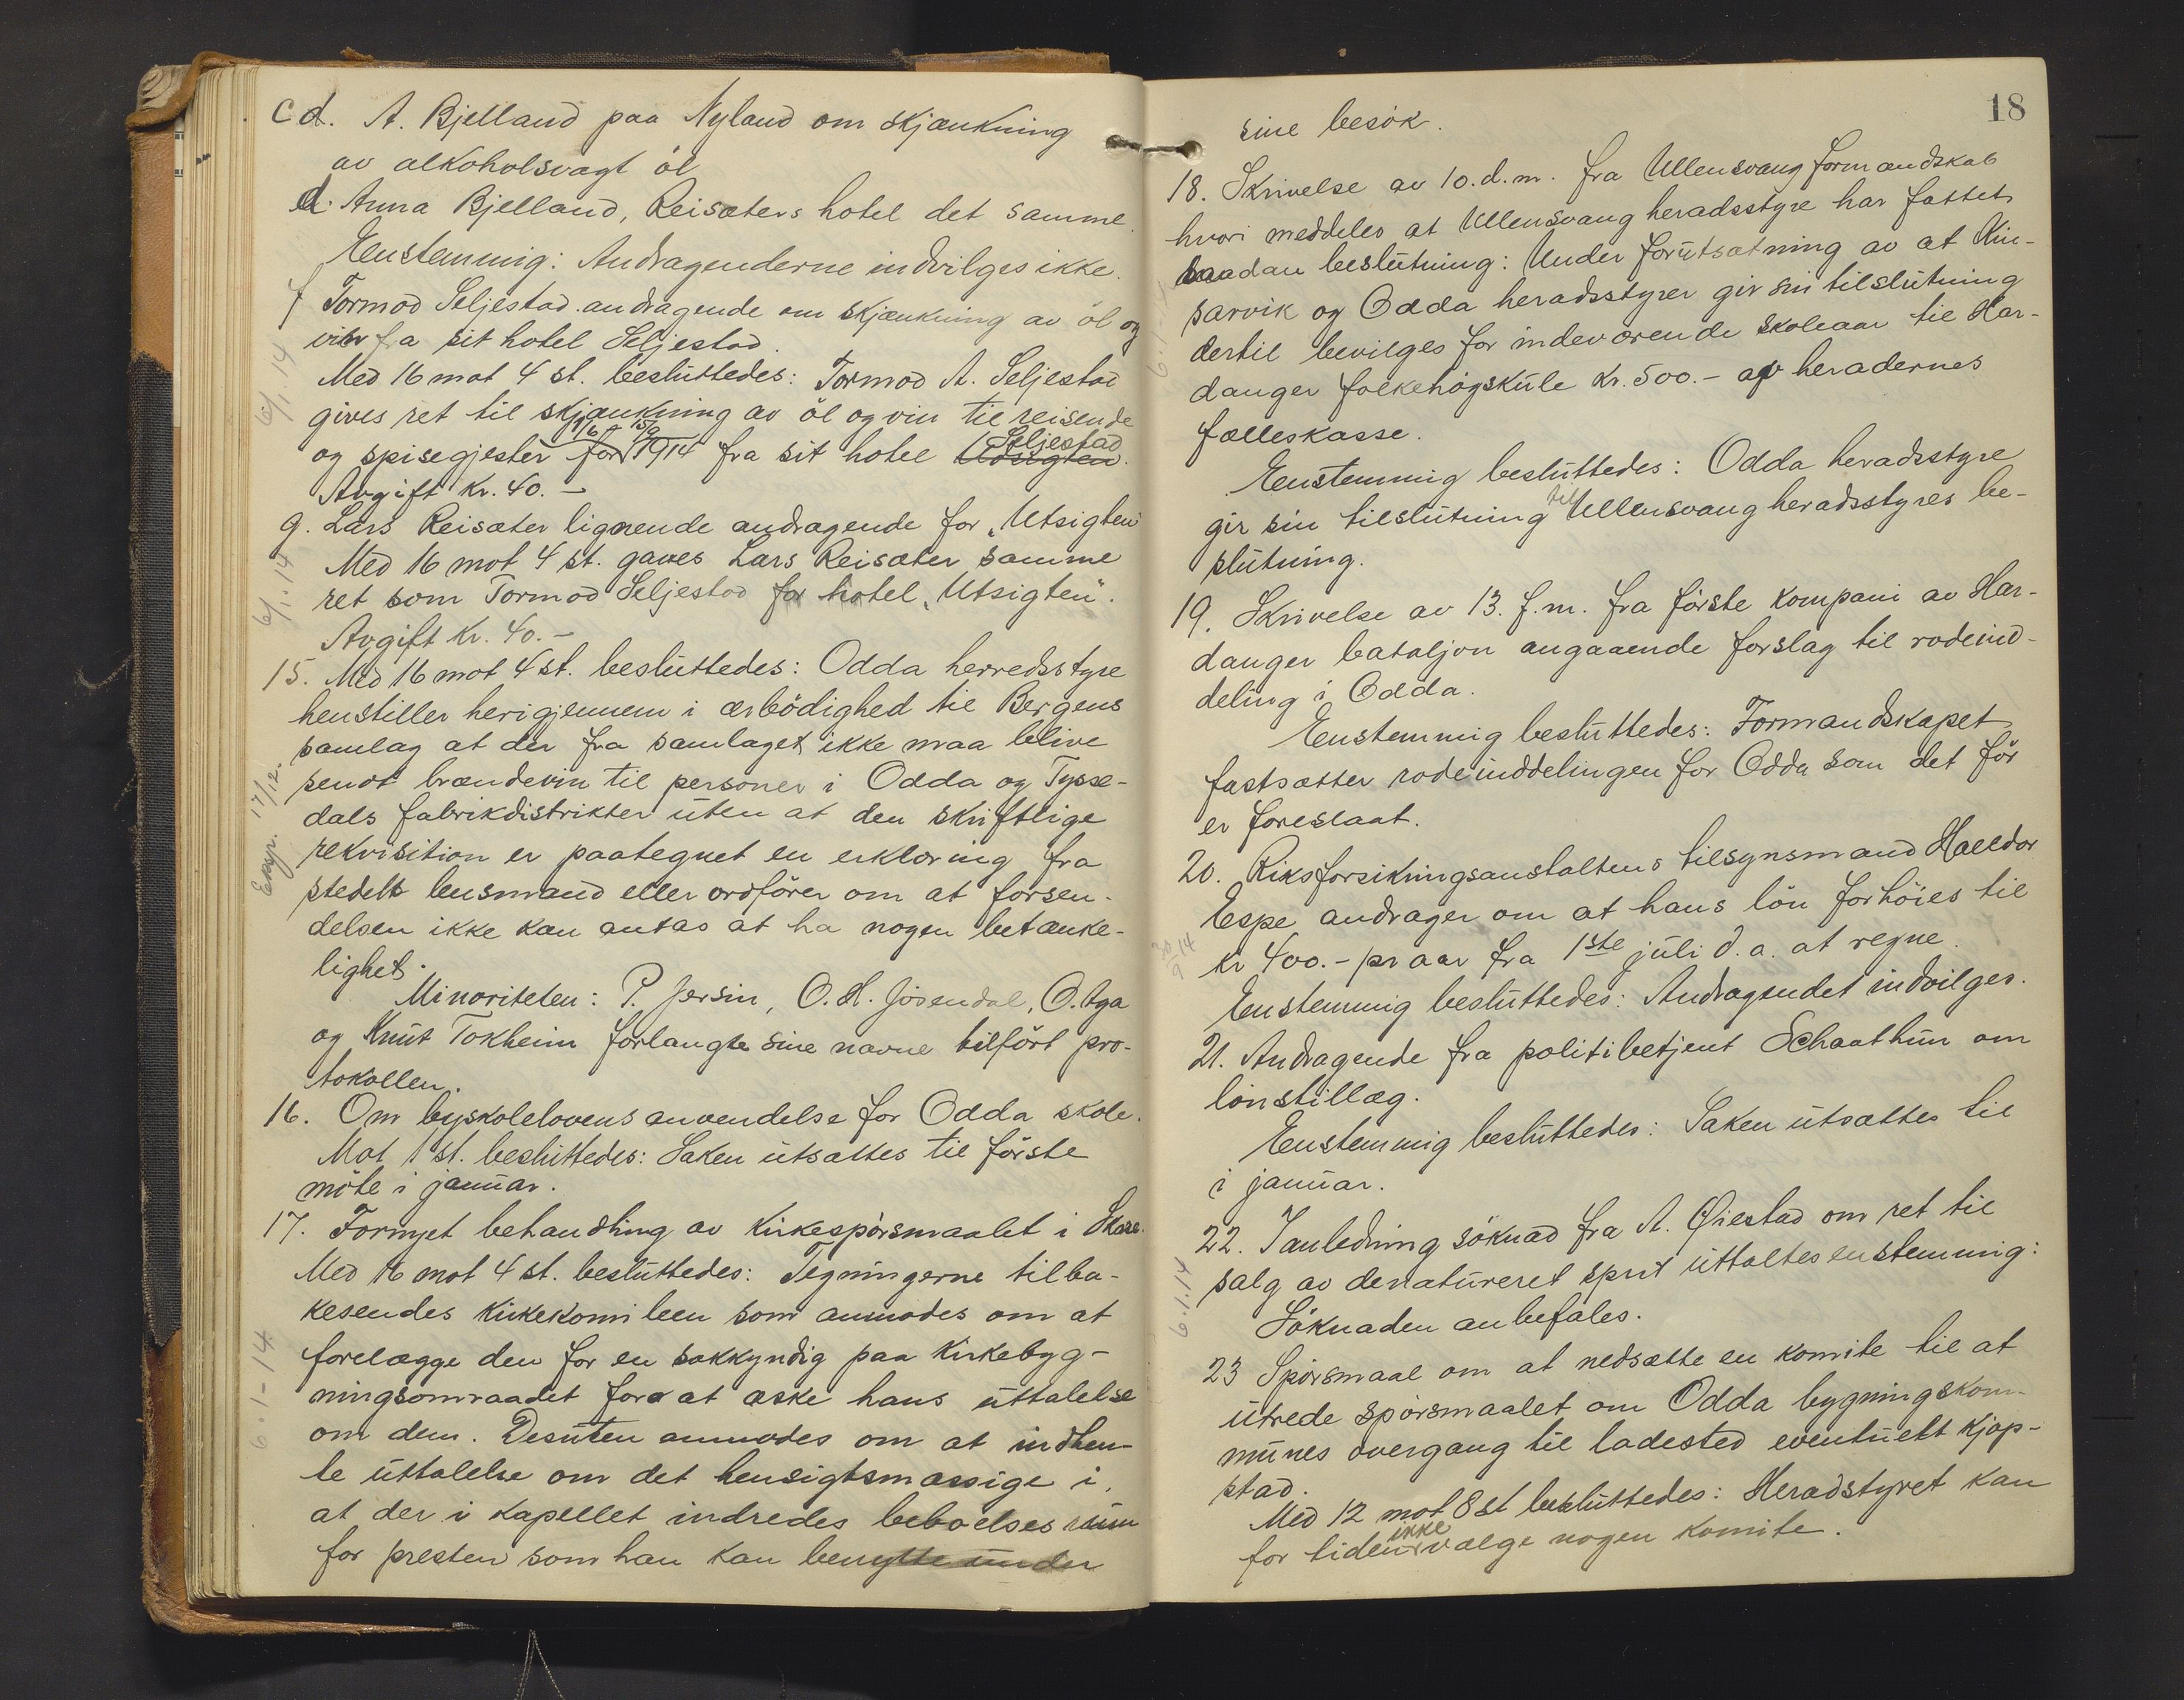 cd. A. Bjelland paa Nyland om skjænkning
av alkoholsvagt öl
d. Anna Bjelland, Reisæters hotel det samme.
Enstemmig: Andragenderne indvilges ikke.
f Tormod Seljestad andragende om skjænkning av öl og
vin fra sit hotel Seljestad.
6/1.14
Med 16 mot 4 st. besluttedes: Tormod A. Seljestad
gives ret til skjænkning av öl og vin til reisende
1/6 - 15/9 Seljestad
og spisegjester for 1914 fra sit hotel Udsigten.
Avgift kr. 40.-
g. Lars Reisæter lignende andragende for „Utsigten"
6/1.14
Med 16 mot 4 st. gaves Lars Reisæter samme
ret som Tormod Seljestad for hotel „Utsigten".
Avgift kr. 40.-
15. Med 16 mot 4 st. besluttedes: Odda herredsstyre
henstiller herigjennem i ærbödighed til Bergens
samlag at der fra samlaget ikke maa blive
17/12.
sendt brændevin til personer i Odda og Tysse-
dals fabrikdistrikter uten at den skriftlige
Exp.
rekvisition er paategnet en erklæring fra
stedets lensmand eller ordförer om at forsen-
delsen ikke kan antas at ha nogen betænke-
lighet.
Minoriteten: P. Jersin, O. H. Jösendal, O. Aga
og Knut Tokheim forlangte sine navne tilfört pro-
tokollen.
16. Om byskolelovens anvendelse for Odda skole.
Mot 1 st. besluttedes: Saken utsættes til förste
möte i januar.
17. Fornyet behandling av kirkespörsmaalet i Skare.
Med 16 mot 4 st. besluttedes: Tegningerne tilba-
kesendes kirkekomiteen som anmodes om at
6.1-14
forelægge den for en sakkyndig paa kirkebyg-
ningsomraadet for at æske hans uttalelse
om dem. Desuten anmodes om at indhen-
te uttalelse om det hensigtsmæssige i,
at der i kapellet indredes beboelsesrum
for presten som han kan benytte under
18
sine besök.
18. Skrivelse av 10. d.m. fra Ullensvang formandskab
hvori meddeles at Ullensvang heradsstyre har fattet
saadan beslutning: Under forutsætning av at Kin-
sarvik og Odda heradsstyrer gir sin tilslutning
dertil bevilges for indeværende skoleaar til Har-
danger folkehögskule kr. 500.- av heradernes
fælleskasse.
Enstemmig besluttedes: Odda heradsstyre
gir sin tilslutning til Ullensvang heradsstyres be-
slutning.
19. Skrivelse av 13. f.m. fra förste kompani av Har-
danger bataljon angaaende forslag til rodeind-
deling i Odda.
Enstemmig besluttedes: Formandskapet
fastsætter rodeinddelingen for Odda som det för
er foreslaat.
20. Riksforsikringsanstaltens tilsynsmand Halldor
Espe andrager om at hans lön forhöies til
30/9 14
kr 400.- pr aar fra 1ste juli d.a. at regne.
Enstemmig besluttedes: Andragendet indvilges.
21. Andragende fra politibetjent Schaathun om
lönstillæg.
Enstemmig besluttedes: Saken utsættes til
i januar.
22. I anledning söknad fra A. Øiestad om ret til
6.1.14
salg av denatureret sprit uttaltes enstemmig:
Söknaden anbefales.
23 Spörsmaal om at nedsætte en komite til at
utrede spörsmaalet om Odda bygningskom-
munes overgang til ladested eventuelt kjøp-
stad.
Med 12 mot 8 st besluttedes: Heradstyret kan
for tiden ikke vælge nogen komite.